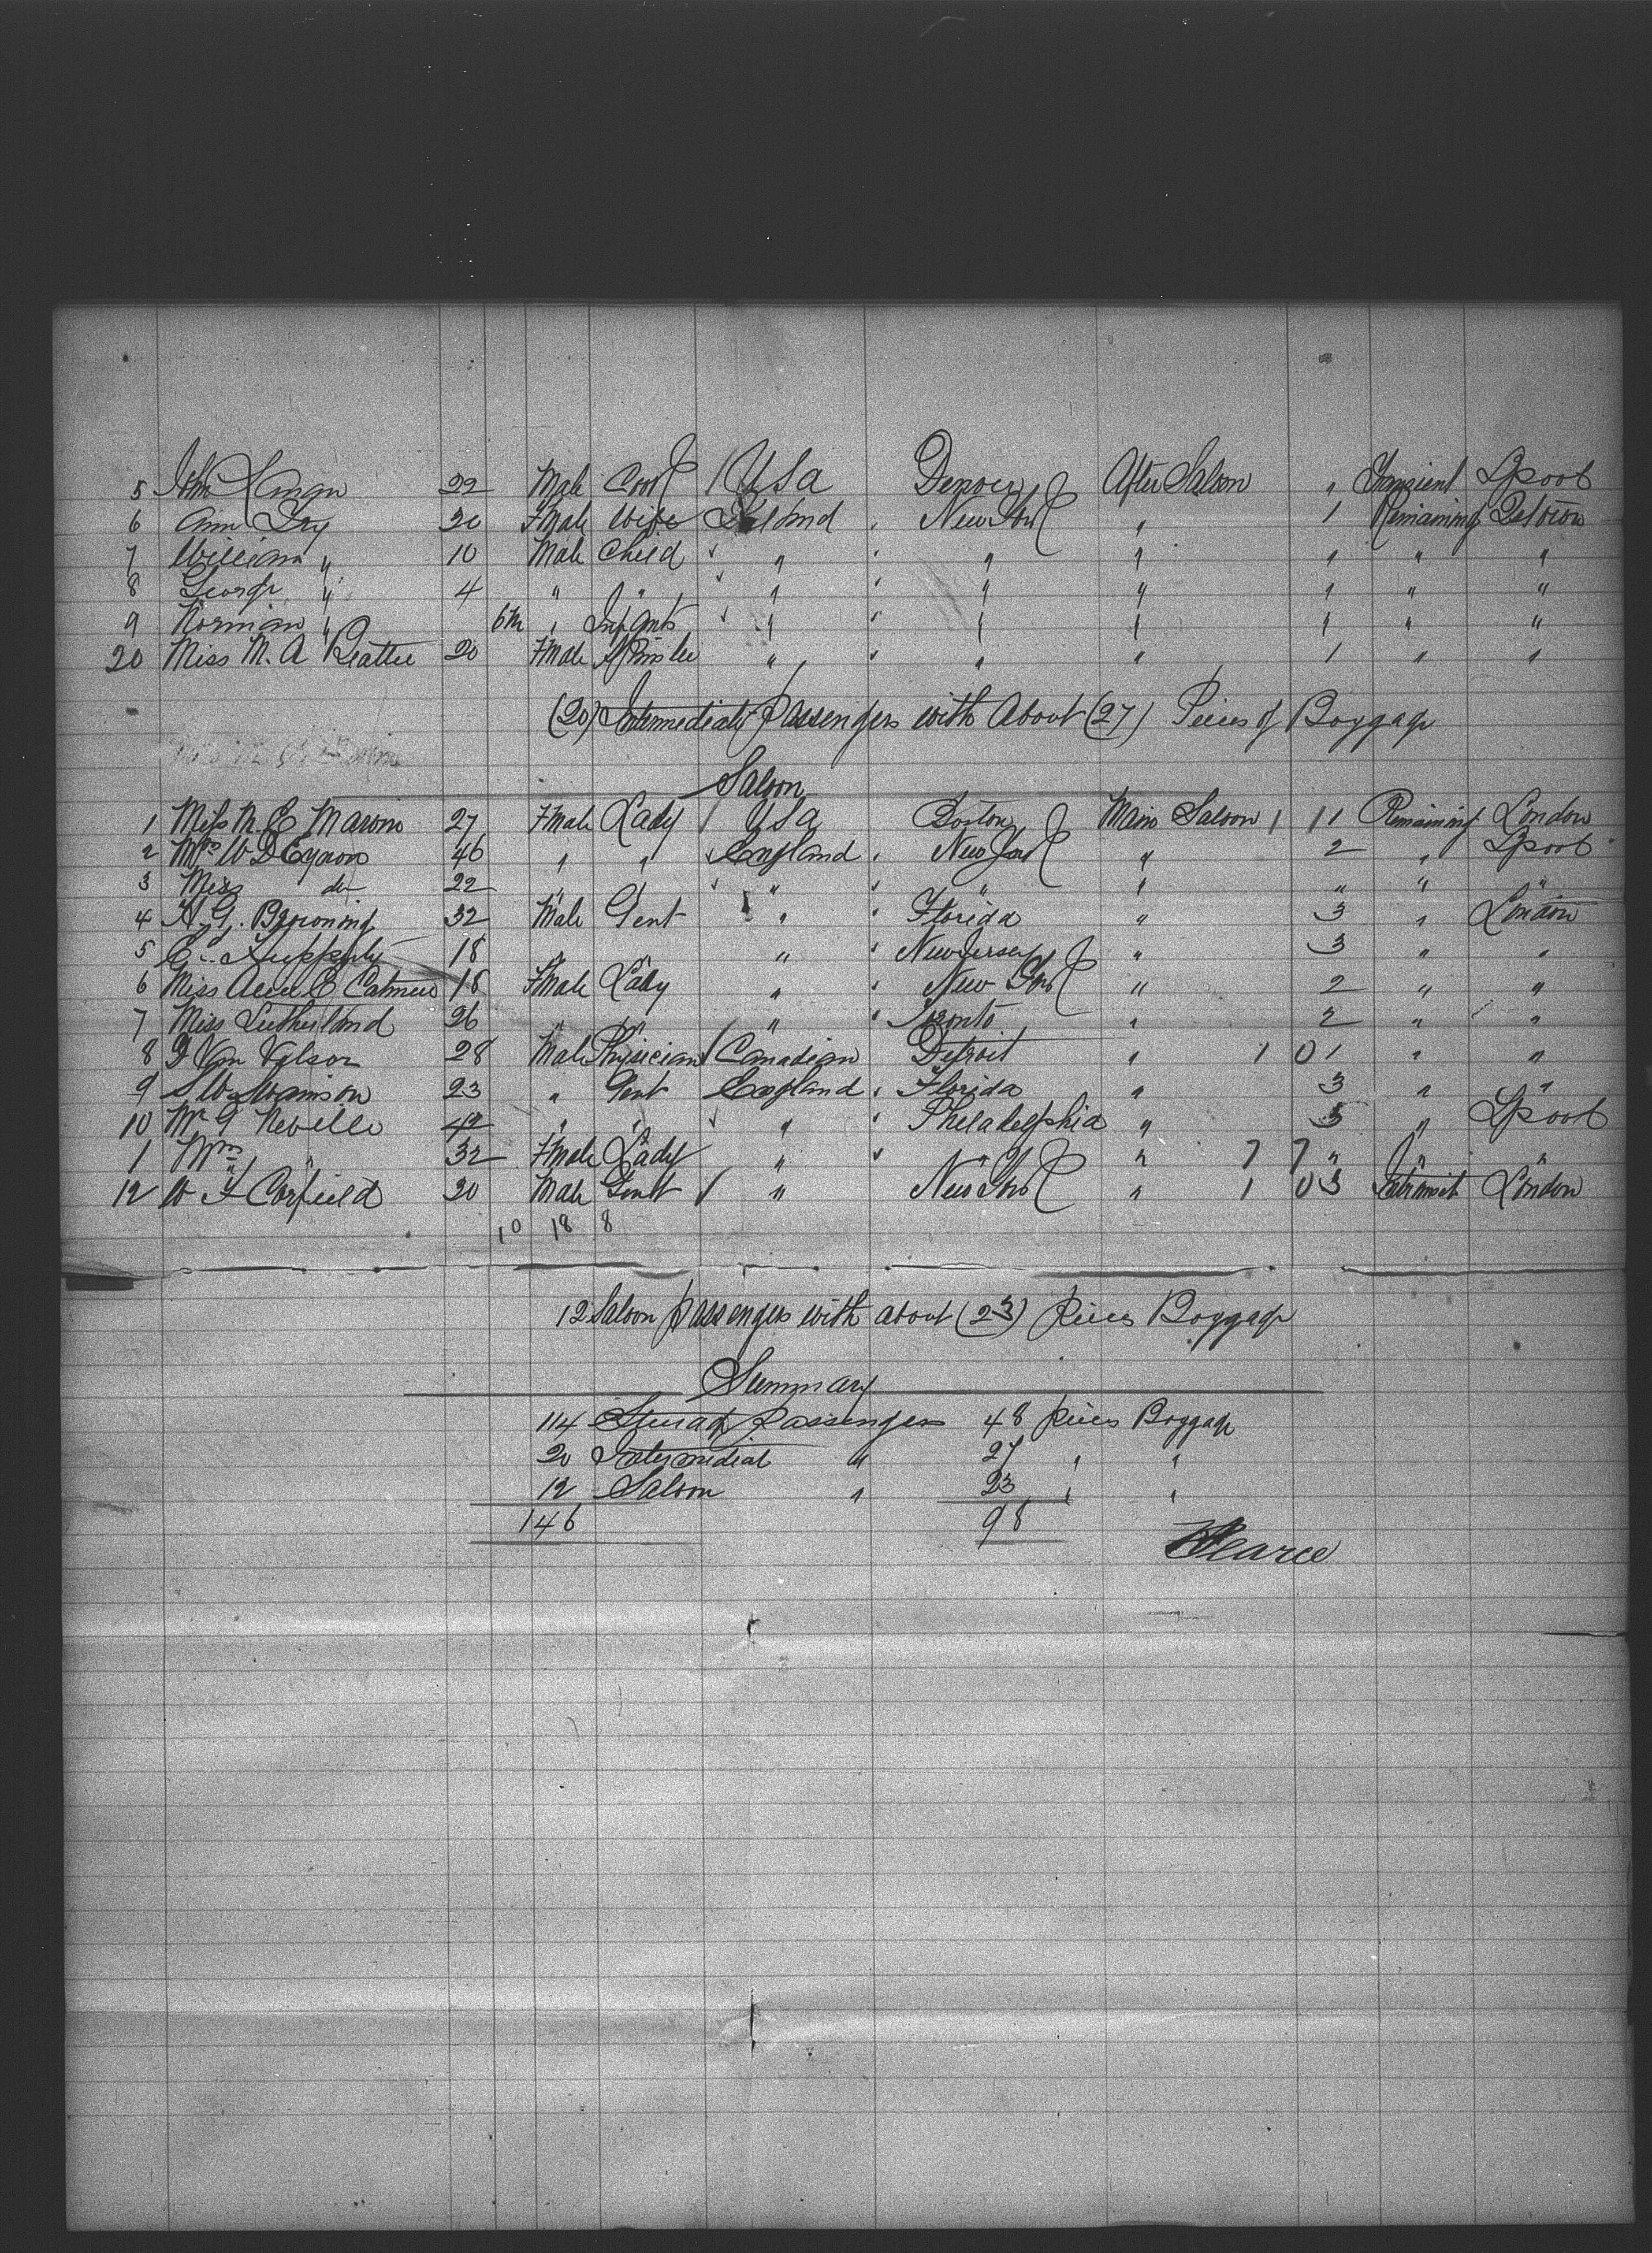 5 John 22 Male Cook / USA Denver After Saloon " Transient Lpool
6 Ann Fry 30 Fmale Wife Ireland " New York " 1 Remaining
7 William " 10 Male Child " " " " " " "
8 George " 4 " " " " " " " " "
9 Norman " 6m " Infants " " " " " " "
20 Miss M. A Beattie 20 Fmale " " " " 1 " "
(20) Intermediate Passengers with About (27) Pieces of Baggage
Saloon
1 Miss M. E 27 Fmale Lady / USA Boston Main Saloon 1 1 1 Remaining London
2 Mrs W D 46 " " England " New York " 2 " Lpool
3 Miss do 22 " " " " " " " " "
4 H. G. Browning 32 Male Gent " " Florida " 3 " London
5 18 " " " " New Jersey " 3 " "
6 Miss E 18 Fmale Lady " " New York " 2 " "
7 Miss Sutherland 26 " " " " Toronto " 2 " "
8 Van 28 Male Physician / Canadian Detroit " 1 0 1 " "
9 S W 23 " Gent England " Florida " 3 " "
10 Mr G Nevelle 42 " " " " Philadelphia " 5 " Lpool
1 Mrs " " 32 Fmale Lady " " " " 7 7 " " "
12 W F Corfield 30 Male Gent / " New York " 1 0 3 Intransit London
10 18 8
12 Saloon passengers with about (23) pieces Baggage
Summary
114 Steerage passengers 48 pieces Baggage
20 Intermediate " 27 " "
12 Saloon " 23 " "
146 98
Pearce